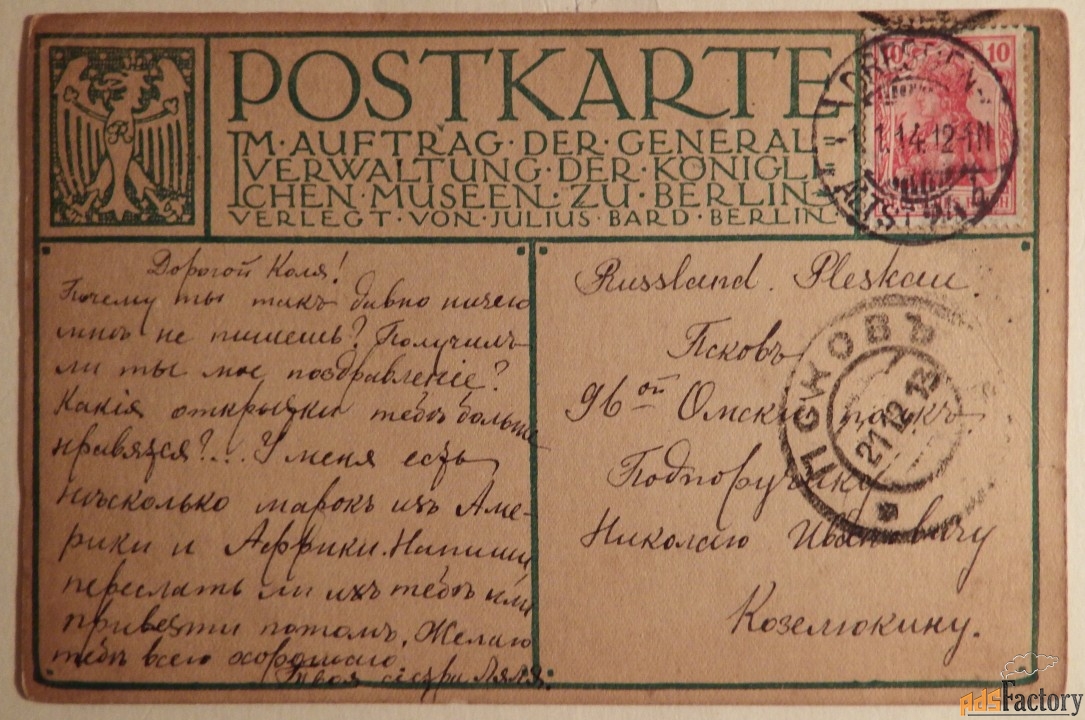 POSTKARTE
IM·AUFTRAG·DER·GENERAL
VERWALTUNG·DER·KÖNIGLI
CHEN·MUSEEN·ZU·BERLIN
VERLEGT·VON·JULIUS·BARD·BERLIN·
10
DRESDEN
1.14.12-1N
ALTST.
Дорогой Коля!
Почему ты такъ давно ничего
мнѣ не пишешь? Получилъ
ли ты мое поздравленіе?
Какія открытки тебѣ больше
нравятся?... У меня есть
нѣсколько марокъ изъ Аме-
рики и Африки. Напиши
переслать ли ихъ тебѣ или
привезти потомъ. Желаю
тебѣ всего хорошаго.
Твоя сестра Ляля.
Russland. Pleskau.
Псковъ
96ой Омскій полкъ
Подпоручику
Николаю Ивановичу
Козелюкину.
ПСКОВЪ
21 12 13
AdsFactory